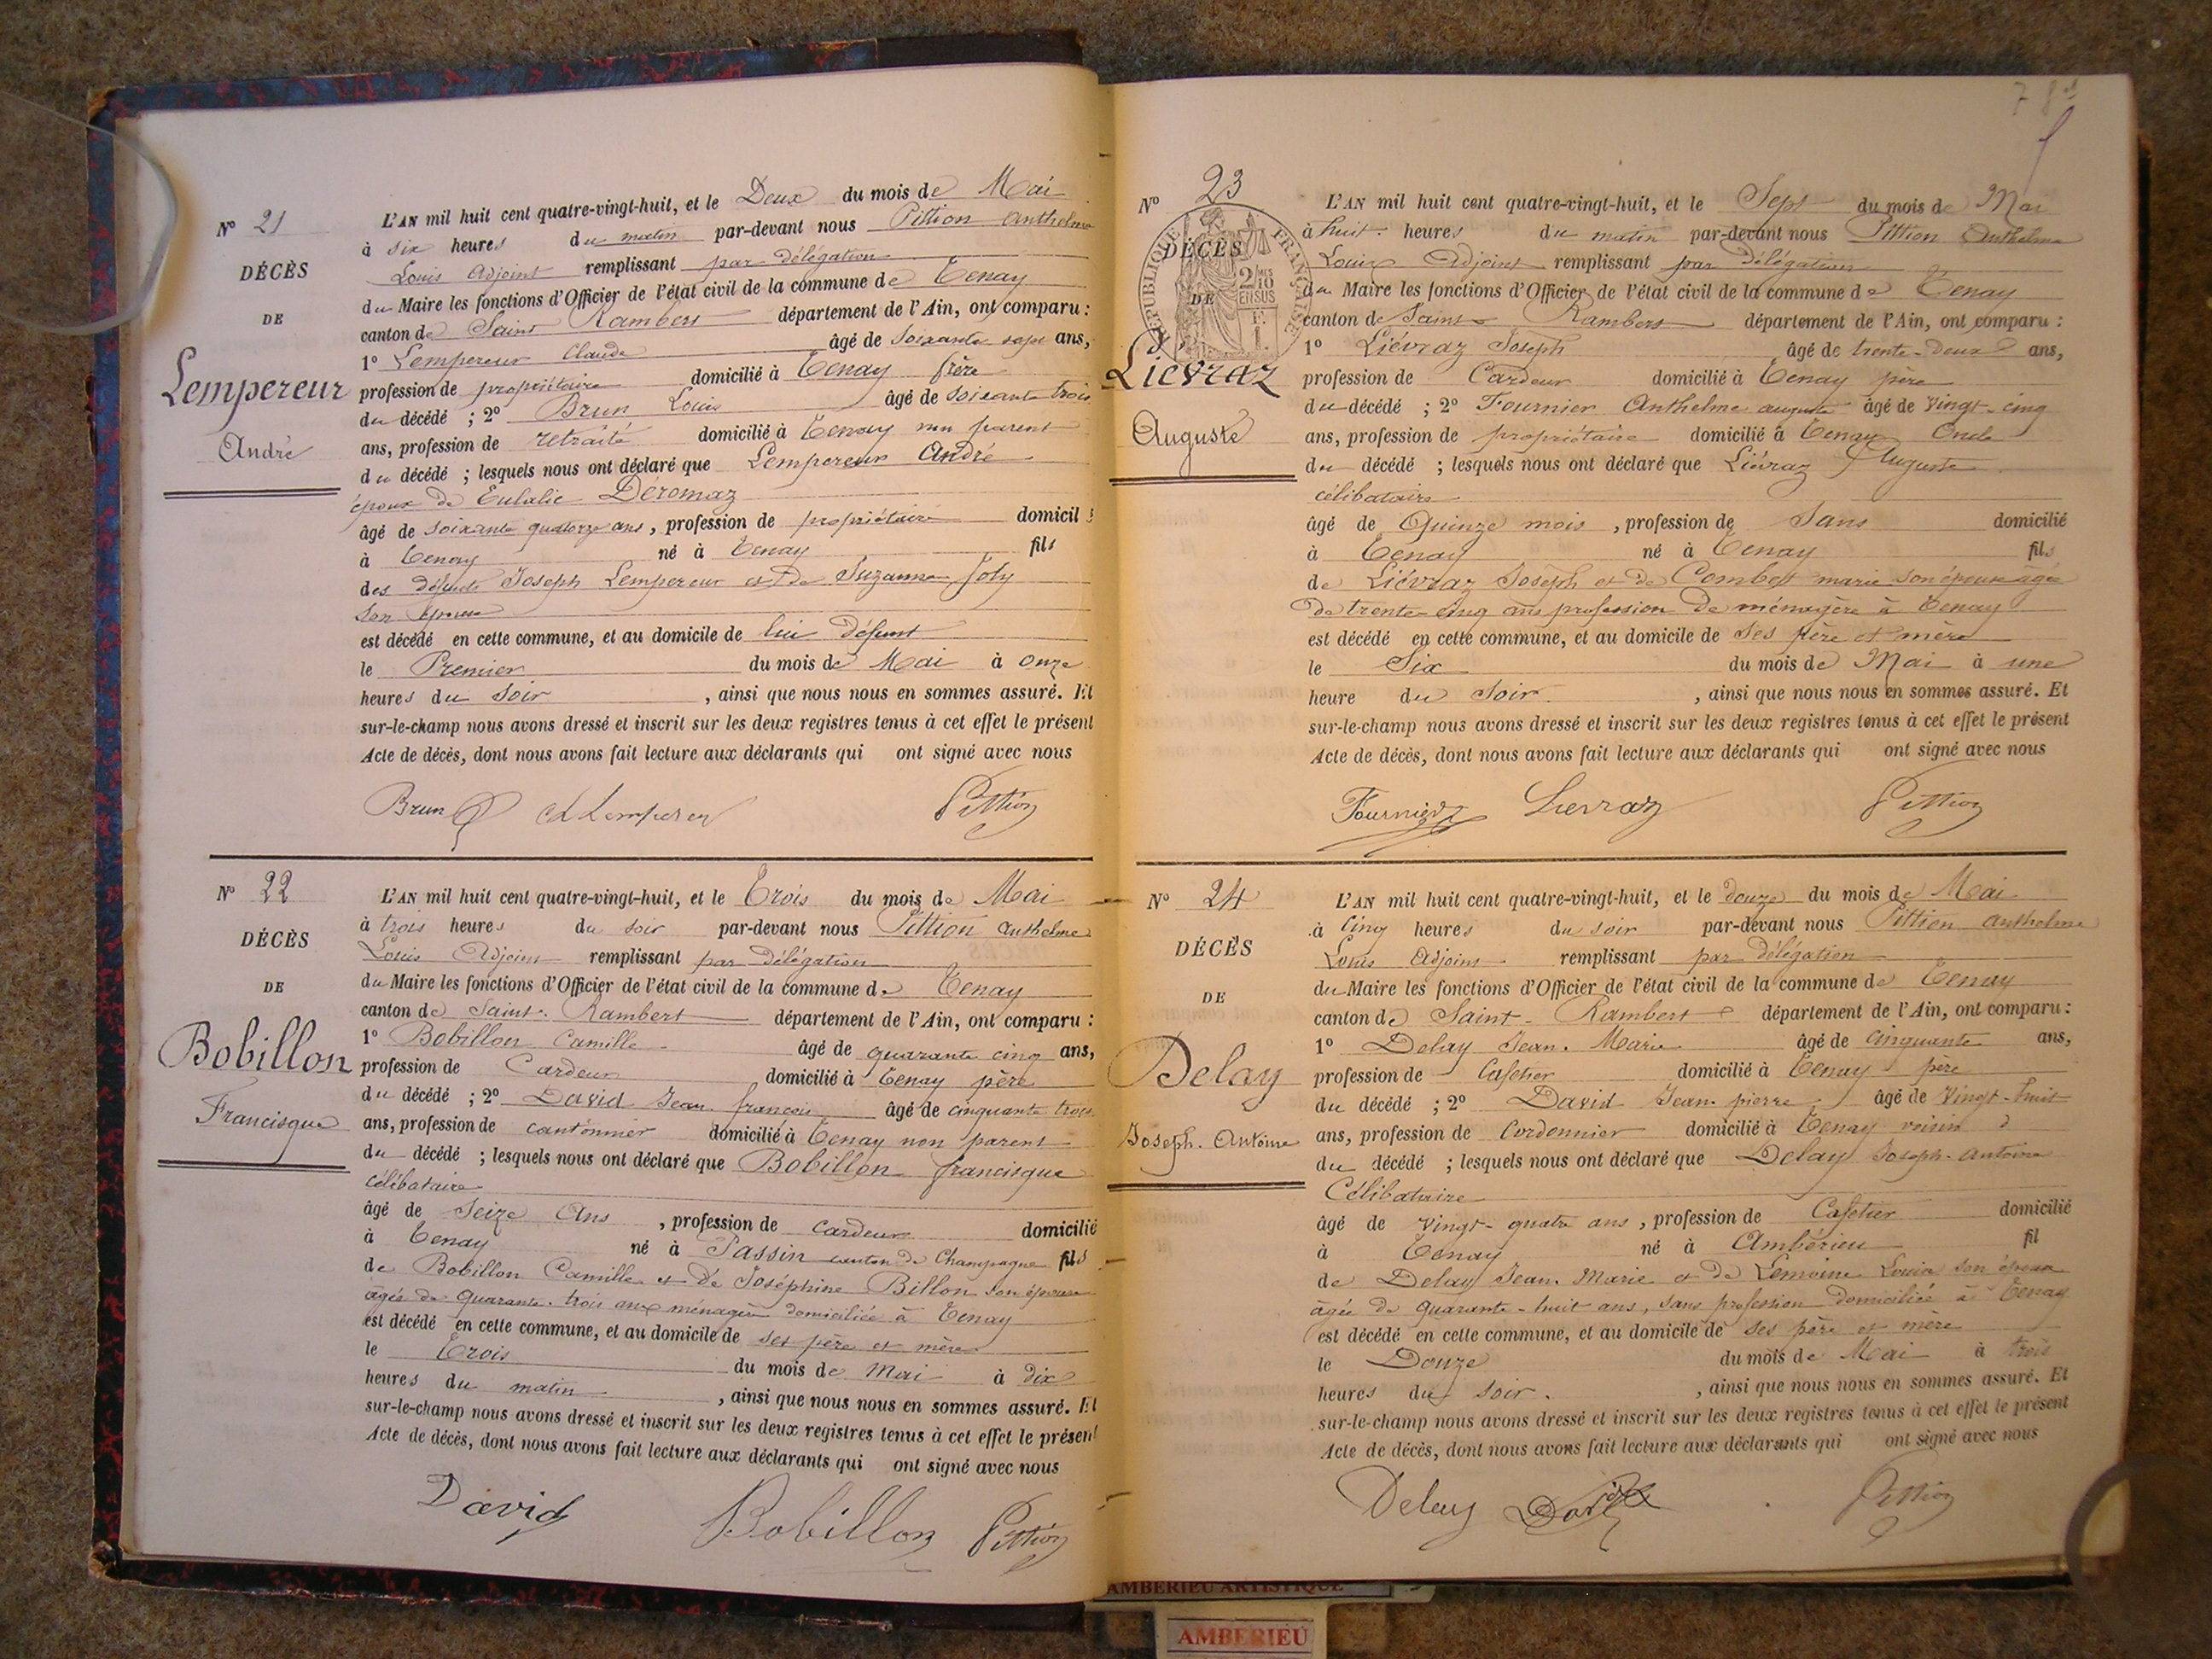 Nº 21
DÉCÈS
DE
Lempereur
André
L'AN mil huit cent quatre-vingt-huit, et le Deux du mois de Mai
à six heures du matin par-devant nous Pittion Anthelme
Louis Adjoint remplissant par délégation
du Maire les fonctions d'Officier de l'état civil de la commune de Tenay
canton de Saint Rambert département de l'Ain, ont comparu :
1º Lempereur Claude âgé de soixante sept ans,
profession de propriétaire domicilié à Tenay frère
du décédé ; 2º Brun Louis âgé de soixante trois
ans, profession de retraité domicilié à Tenay non parent
du décédé ; lesquels nous ont déclaré que Lempereur André
époux de Eulalie Déromaz
âgé de soixante quatorze ans, profession de propriétaire domicilé
à Tenay né à Tenay fils
des défunts Joseph Lempereur et de Suzanne Joly
son épouse
est décédé en cette commune, et au domicile de lui défunt
le Premier du mois de Mai à onze
heures du soir, ainsi que nous nous en sommes assuré. Et
sur-le-champ nous avons dressé et inscrit sur les deux registres tenus à cet effet le présent
Acte de décès, dont nous avons fait lecture aux déclarants qui ont signé avec nous
Brun Lempereur Pittion
Nº 22
DÉCÈS
DE
Bobillon
Francisque
L'AN mil huit cent quatre-vingt-huit, et le Trois du mois de Mai
à trois heures du soir par-devant nous Pittion Anthelme
Louis Adjoint remplissant par délégation
du Maire les fonctions d'Officier de l'état civil de la commune de Tenay
canton de Saint-Rambert département de l'Ain, ont comparu :
1º Bobillon Camille âgé de quarante cinq ans,
profession de Cardeur domicilié à Tenay père
du décédé ; 2º David Jean françois âgé de cinquante trois
ans, profession de cantonnier domicilié à Tenay non parent
du décédé ; lesquels nous ont déclaré que Bobillon francisque
célibataire
âgé de Seize Ans, profession de cardeur domicilié
à Tenay né à Passin canton de Champagne fils
de Bobillon Camille et de Joséphine Billon son épouse
âgée de quarante-trois ans ménagère domiciliée à Tenay
est décédé en cette commune, et au domicile de ses père et mère
le Trois du mois de Mai à dix
heures du matin, ainsi que nous nous en sommes assuré. Et
sur-le-champ nous avons dressé et inscrit sur les deux registres tenus à cet effet le présent
Acte de décès, dont nous avons fait lecture aux déclarants qui ont signé avec nous
David Bobillon Pittion
78
Nº 23
RÉPUBLIQUE FRANÇAISE
2/10 EN SUS
DÉCÈS
DE
Liévraz
Auguste
L'AN mil huit cent quatre-vingt-huit, et le Sept du mois de Mai
à huit heures du matin par-devant nous Pittion Anthelme
Louis Adjoint remplissant par délégation
du Maire les fonctions d'Officier de l'état civil de la commune de Tenay
canton de Saint Rambert département de l'Ain, ont comparu :
1º Liévraz Joseph âgé de trente-deux ans,
profession de Cardeur domicilié à Tenay père
du décédé ; 2º Fournier Anthelme auguste âgé de vingt-cinq
ans, profession de propriétaire domicilié à Tenay Oncle
du décédé ; lesquels nous ont déclaré que Liévraz Auguste
célibataire
âgé de Quinze mois, profession de Sans domicilié
à Tenay né à Tenay fils
de Liévraz Joseph et de Combet marie son épouse âgée
de trente-cinq ans profession de ménagère à Tenay
est décédé en cette commune, et au domicile de ses père et mère
le Six du mois de Mai à une
heure du soir, ainsi que nous nous en sommes assuré. Et
sur-le-champ nous avons dressé et inscrit sur les deux registres tenus à cet effet le présent
Acte de décès, dont nous avons fait lecture aux déclarants qui ont signé avec nous
Fournier Lievraz Pittion
Nº 24
DÉCÈS
DE
Delay
Joseph-Antoine
L'AN mil huit cent quatre-vingt-huit, et le douze du mois de Mai
à Cinq heures du soir par-devant nous Pittion anthelme
Louis Adjoint remplissant par délégation
du Maire les fonctions d'Officier de l'état civil de la commune de Tenay
canton de Saint-Rambert département de l'Ain, ont comparu :
1º Delay Jean-Marie âgé de Cinquante ans,
profession de Cafetier domicilié à Tenay père
du décédé ; 2º David Jean-pierre âgé de vingt-huit
ans, profession de Cordonnier domicilié à Tenay voisin
du décédé ; lesquels nous ont déclaré que Delay Joseph-Antoine
Célibataire
âgé de vingt-quatre ans, profession de Cafetier domicilié
à Tenay né à Ambérieu fil
de Delay Jean-Marie et de Lemoine Louise son épouse
âgée de quarante-huit ans, sans profession domiciliée à Tenay
est décédé en cette commune, et au domicile de ses père et mère
le Douze du mois de Mai à trois
heures du soir, ainsi que nous nous en sommes assuré. Et
sur-le-champ nous avons dressé et inscrit sur les deux registres tenus à cet effet le présent
Acte de décès, dont nous avons fait lecture aux déclarants qui ont signé avec nous
Delay David Pittion
AMBERIEU ARTISTIQUE
AMBERIEU